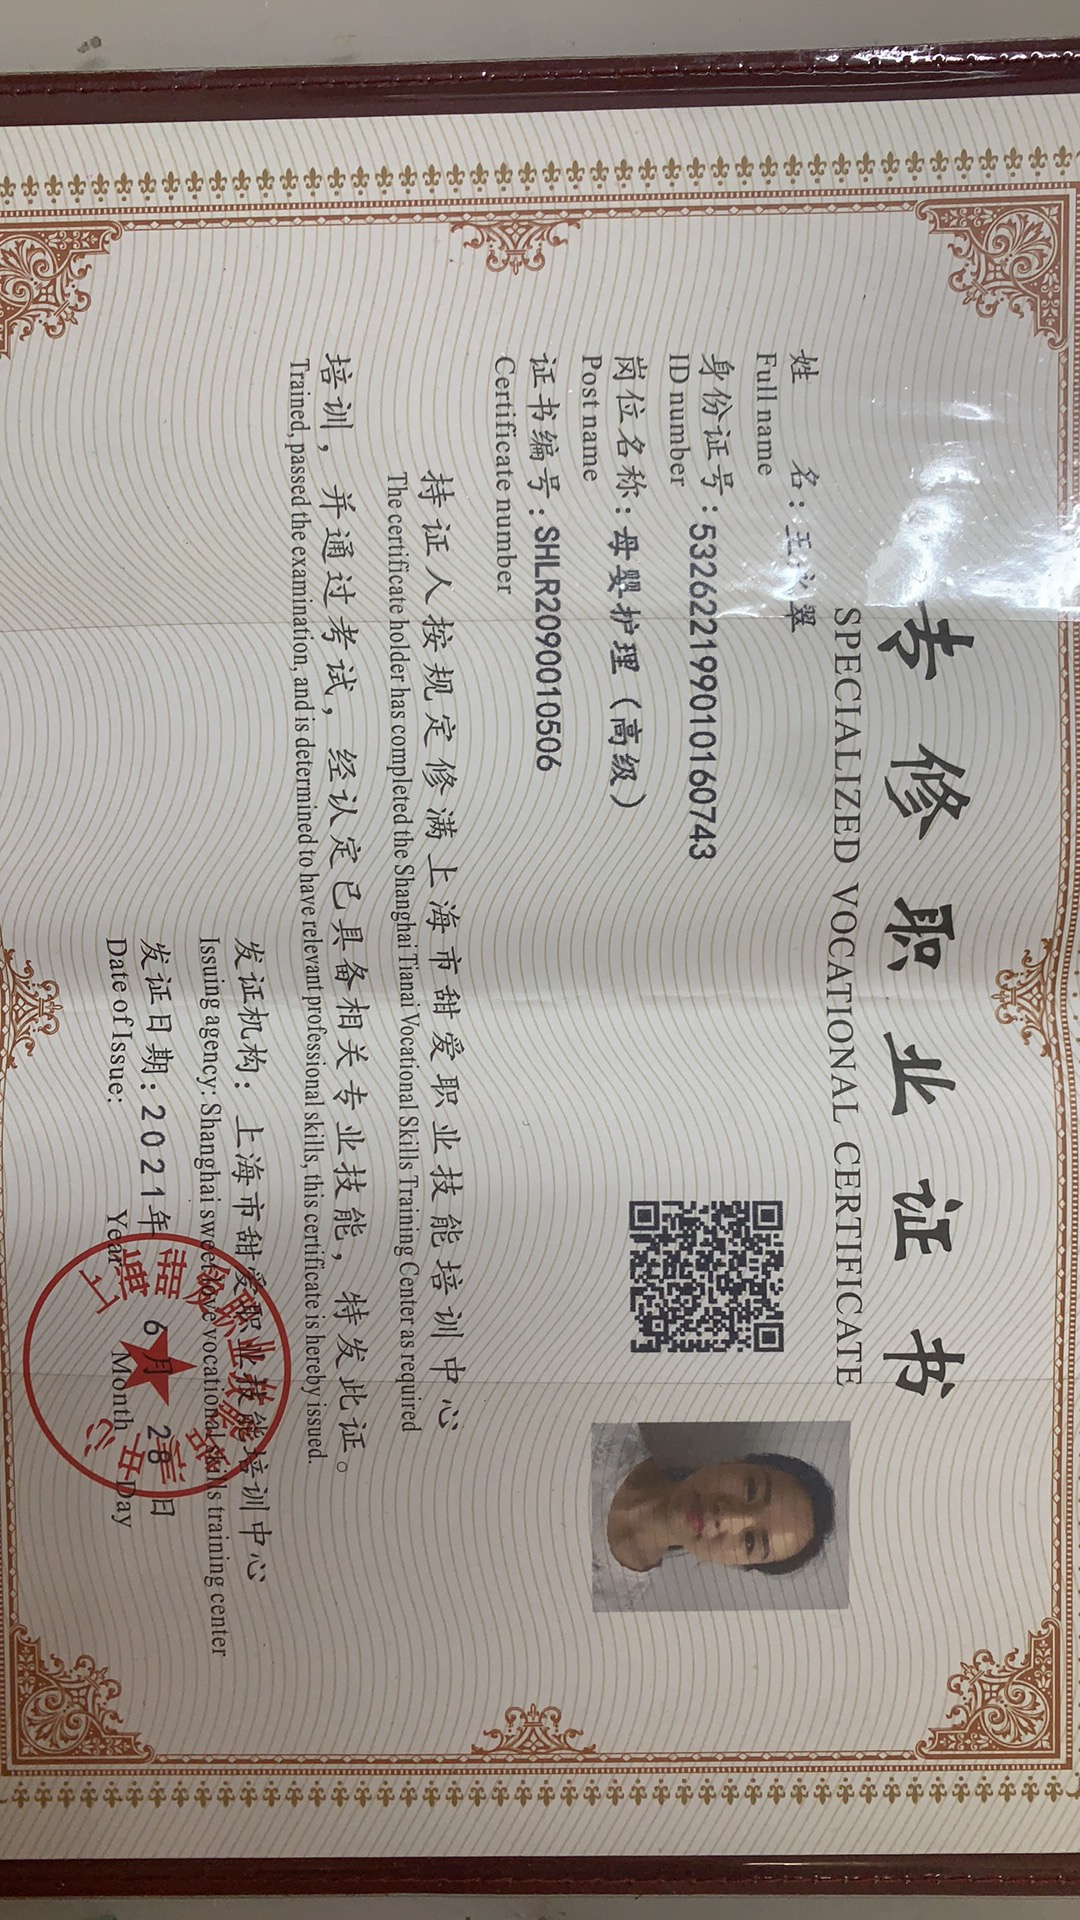 专修职业证书
SPECIALIZED VOCATIONAL CERTIFICATE
姓 名：王 翠
Full name
身份证号：532622199010160743
ID number
岗位名称：母婴护理（高级）
Post name
证书编号：SHLR2090010506
Certificate number
持证人按规定修满上海市甜爱职业技能培训中心
The certificate holder has completed the Shanghai Tianai Vocational Skills Training Center as required
培训，并通过考试，经认定已具备相关专业技能，特发此证。
Trained, passed the examination, and is determined to have relevant professional skills, this certificate is hereby issued.
发证机构：上海市甜爱职业技能培训中心
Issuing agency: Shanghai sweet love vocational skills training center
发证日期：2021年 6月 28日
Date of Issue: Year Month Day